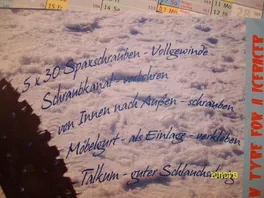 11 Mo
5 x 30 Spaxschrauben - Vollgewinde
Schraubkanal - vorbohren
von Innen nach Außen - schrauben
Möbelgurt - als Einlage - verkleben
Talkum - guter Schlauchschutz
N TYPE FOR A ICERACER